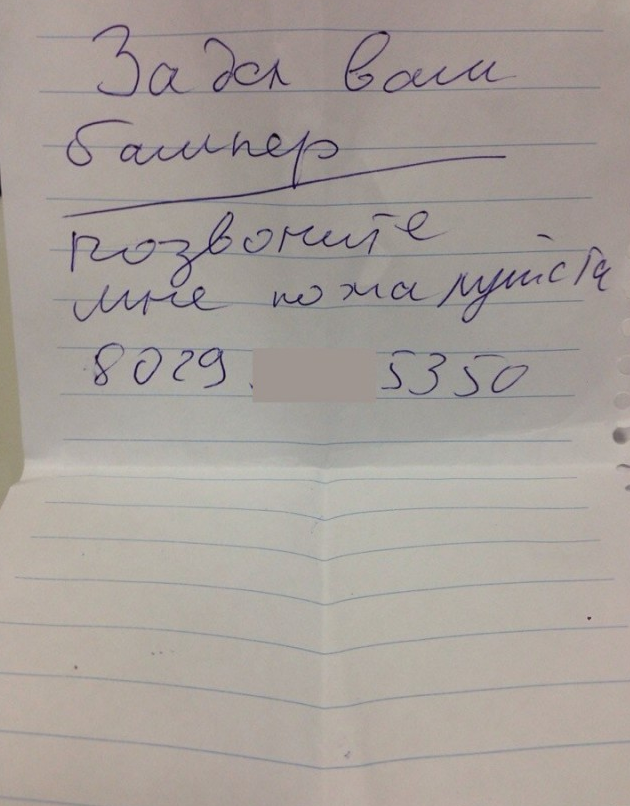 Задел вам
бампер
позвоните
мне пожалуйста
8029 5350